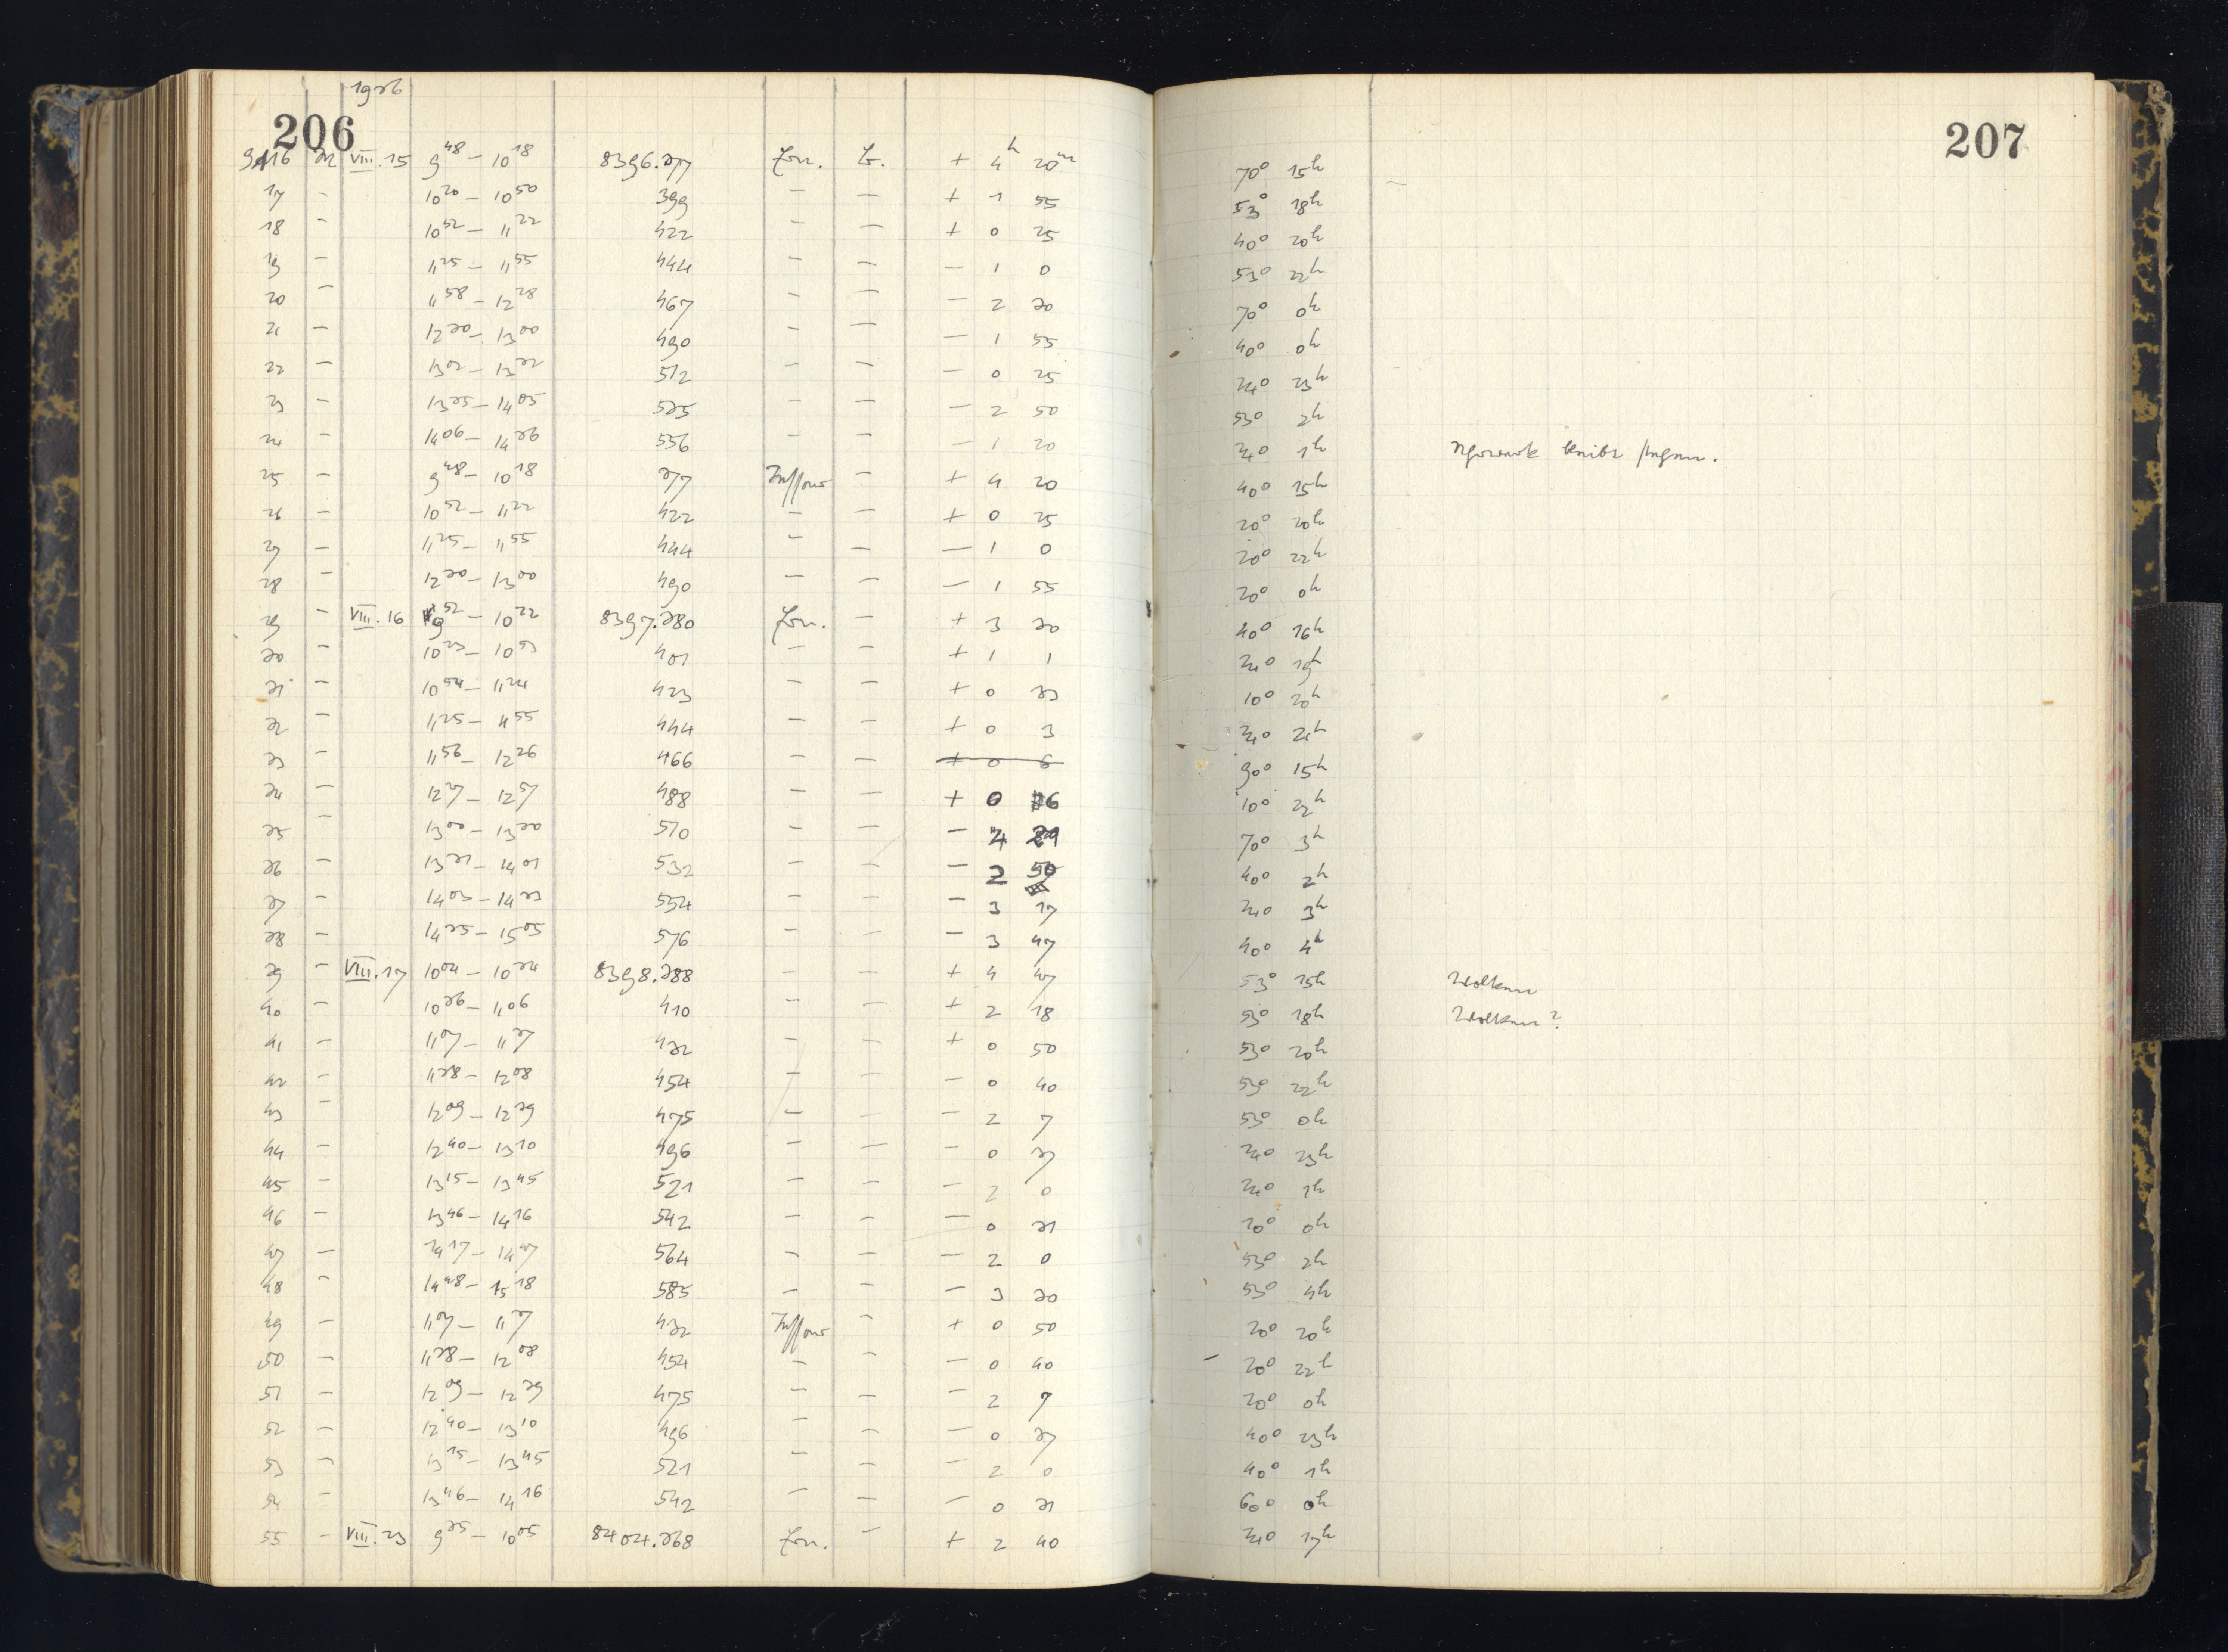 1936
206 207
9416 M VIII.15 9 48 – 10 18 8396.377 Ern. + 4h 20m 70° 15h
17 – 10 20 – 10 50 399 – – + 1 55 53° 18h
18 – 10 52 – 11 22 422 – – + 0 25 40° 20h
19 – 11 25 – 11 55 444 – – – 1 0 53° 22h
20 – 11 58 – 12 28 467 – – – 2 30 70° 0h
21 – 12 30 – 13 00 490 – – – 1 55 40° 0h
22 – 13 02 – 13 32 512 – – – 0 25 24° 23h
23 – 13 35 – 14 05 535 – – – 2 50 53° 2h
24 – 14 06 – 14 36 556 – – – 1 20 24° 1h bleibt stehen.
25 – 9 48 – 10 18 377 Tessar – + 4 20 40° 15h
26 – 10 52 – 11 22 422 – – + 0 25 20° 20h
27 – 11 25 – 11 55 444 – – – 1 0 20° 22h
28 – 12 30 – 13 00 490 – – – 1 55 20° 0h
29 – VIII.16 9 52 – 10 22 8397.380 Ern. – + 3 30 40° 16h
30 – 10 23 – 10 53 401 – – + 1 1 24° 19h
31 – 10 54 – 11 24 423 – – + 0 33 10° 20h
32 – 11 25 – 11 55 444 – – + 0 3 24° 21h
33 – 11 56 – 12 26 466 – – + 0 6 90° 15h
34 – 12 27 – 12 57 488 – – + 0 6 10° 22h
35 – 13 00 – 13 30 510 – – – 4 70° 3h
36 – 13 31 – 14 01 532 – – – 2 50 40° 2h
37 – 14 03 – 14 33 554 – – – 3 17 24° 3h
38 – 14 35 – 15 05 576 – – – 3 47 40° 4h
39 – VIII.17 10 04 – 10 34 8398.388 – – + 4 47 53° 15h Wolken
40 – 10 36 – 11 06 410 – – + 2 18 53° 18h Wolken?
41 – 11 07 – 11 37 432 – – + 0 50 53° 20h
42 – 11 38 – 12 08 454 – – – 0 40 53° 22h
43 – 12 09 – 12 39 475 – – – 2 7 53° 0h
44 – 12 40 – 13 10 496 – – – 0 37 24° 23h
45 – 13 15 – 13 45 521 – – – 2 0 24° 1h
46 – 13 46 – 14 16 542 – – – 0 31 70° 0h
47 – 14 17 – 14 47 564 – – – 2 0 53° 2h
48 – 14 48 – 15 18 585 – – – 3 30 53° 4h
49 – 11 07 – 11 37 432 Tessar – + 0 50 20° 20h
50 – 11 38 – 12 08 454 – – – 0 40 20° 22h
51 – 12 09 – 12 39 475 – – – 2 7 20° 0h
52 – 12 40 – 13 10 496 – – – 0 37 40° 23h
53 – 13 15 – 13 45 521 – – – 2 0 40° 1h
54 – 13 46 – 14 16 542 – – – 0 31 60° 0h
55 – VIII.23 9 35 – 10 05 8404.368 Ern. – + 2 40 24° 17h